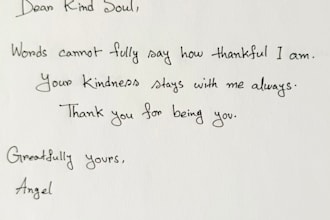 Dear Kind Soul,
Words cannot fully say how thankful I am.
Your kindness stays with me always.
Thank you for being you.
Greatfully yours,
Angel